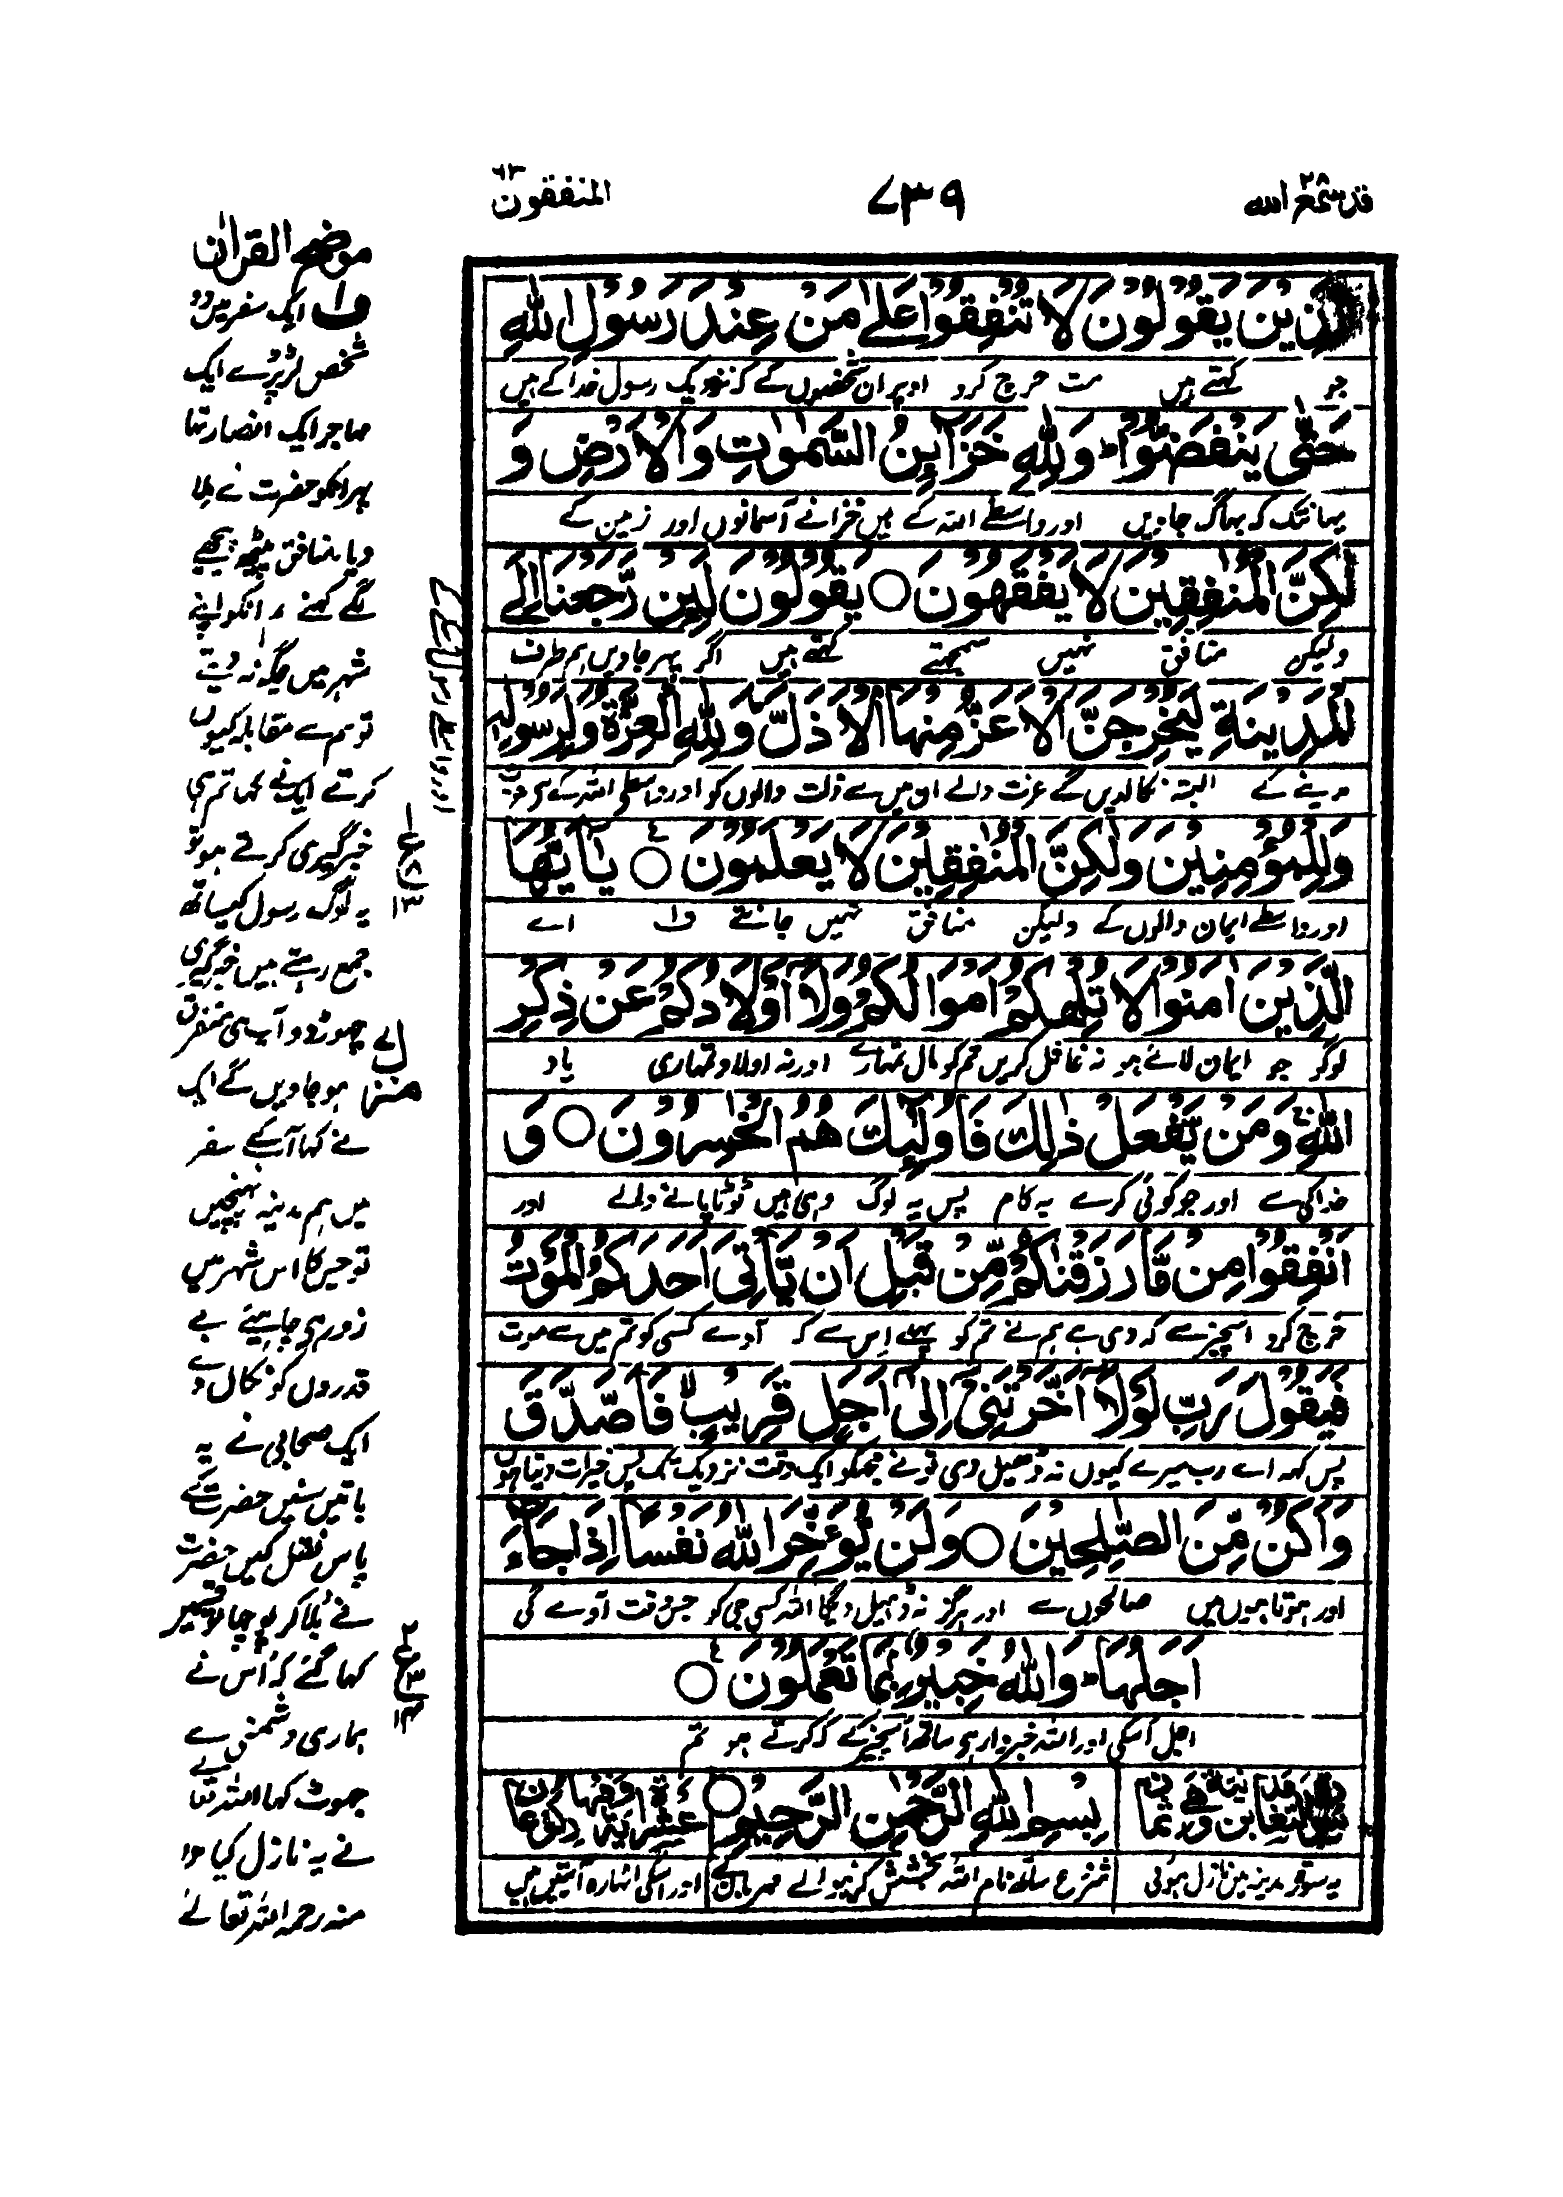 قد سمع الله ٢٨
٧٣٩
المنفقون ٦٣
الَّذِيْنَ يَقُوْلُوْنَ لَا تُنْفِقُوْا عَلٰى مَنْ عِنْدَ رَسُوْلِ اللّٰهِ
جو کہتے ہیں مت خرچ کرو اوپر ان شخصوں کے کہ نزدیک رسول خدا کے ہیں
حَتّٰى يَنْفَضُّوْاؕ وَلِلّٰهِ خَزَآئِنُ السَّمٰوٰتِ وَالْاَرْضِ وَ
یہانتک کہ بھاگ جاویں اور واسطے اللہ کے ہیں خزانے آسمانوں اور زمین کے
لٰكِنَّ الْمُنٰفِقِيْنَ لَا يَفْقَهُوْنَ ○ يَقُوْلُوْنَ لَئِنْ رَّجَعْنَا اِلَى
ولیکن منافق نہیں سمجھتے کہتے ہیں اگر پھر جاویں ہم طرف
الْمَدِيْنَةِ لَيُخْرِجَنَّ الْاَعَزُّ مِنْهَا الْاَذَلَّ وَلِلّٰهِ الْعِزَّةُ وَلِرَسُوْلِهٖ
مدینے کے البتہ نکالدیں گے عزت والے اس میں سے ذلت والوں کو اور واسطے اللہ کے ہی عزت
وَلِلْمُؤْمِنِيْنَ وَلٰكِنَّ الْمُنٰفِقِيْنَ لَا يَعْلَمُوْنَ ○ يٰۤاَيُّهَا
اور واسطے ایمان والوں کے ولیکن منافق نہیں جانتے ف۱ اے
الَّذِيْنَ اٰمَنُوْا لَا تُلْهِكُمْ اَمْوَالُكُمْ وَلَاۤ اَوْلَادُكُمْ عَنْ ذِكْرِ
لوگو جو ایمان لائے ہو نہ غافل کریں تم کو مال تمہارے اور نہ اولاد تمہاری یاد
اللّٰهِ وَمَنْ يَّفْعَلْ ذٰلِكَ فَاُولٰٓئِكَ هُمُ الْخٰسِرُوْنَ ○ وَ
خدا کی سے اور جو کوئی کرے یہ کام پس یہ لوگ وہی ہیں ٹوٹا پانے والے اور
اَنْفِقُوْا مِنْ مَّا رَزَقْنٰكُمْ مِّنْ قَبْلِ اَنْ يَّاْتِيَ اَحَدَكُمُ الْمَوْتُ
خرچ کرو اسچیز سے کہ دی ہے ہم نے تم کو پہلے اس سے کہ آوے کسی کو تم میں سے موت
فَيَقُوْلَ رَبِّ لَوْلَاۤ اَخَّرْتَنِيْۤ اِلٰۤى اَجَلٍ قَرِيْبٍ فَاَصَّدَّقَ
پس کہے اے رب میرے کیوں نہ ڈھیل دی تونے مجھکو ایک وقت نزدیک تک پس خیرات دیتا ہوں
وَاَكُنْ مِّنَ الصّٰلِحِيْنَ ○ وَلَنْ يُّؤَخِّرَ اللّٰهُ نَفْسًا اِذَا جَآءَ
اور ہوتا ہوں میں صالحوں سے اور ہرگز نہ ڈھیل دیگا اللہ کسی جی کو جس وقت آوے گی
اَجَلُهَاؕ وَاللّٰهُ خَبِيْرٌۢ بِمَا تَعْمَلُوْنَ ○
اجل اسکی اور اللہ خبردار ہی ساتھ اسچیز کے کہ کرتے ہو تم
بِسْمِ اللّٰهِ الرَّحْمٰنِ الرَّحِيْمِ ○
یہ سورۃ مدینہ میں نازل ہوئی
شروع ساتھ نام اللہ بخشش کرنیوالے مہربان کے
اور اسکی اٹھارہ آیتیں ہیں
موضح القرآن
ف۱ ایک سفر میں دو
شخص لڑ پڑے ایک
مہاجر ایک انصار تھا
پھر انکو حضرت نے ملا
دیا منافق بیٹھ پیچھے
لگے کہنے انکو اپنے
شہر میں جگہ نہ دیتے
تو ہم سے مقابلہ کیوں
کرتے ایک نے کہا تم ہی
خبرگیری کرتے ہو تو
یہ لوگ رسول کیساتھ
جمع رہتے ہیں خبرگیری
چھوڑ دو آپ ہی متفرق
ہو جاویں گے ایک
نے کہا آبکے سفر
میں ہم مدینہ پہنچیں
تو جس کا اس شہر میں
زور ہی چاہیئے بے
قدروں کو نکال دے
ایک صحابی نے یہ
باتیں سنیں حضرت کے
پاس نقل کیں حضرت
نے بلا کر پوچھا تو
کہا گئے کہ اس نے
ہماری دشمنی سے
جھوٹ کہا اللہ تعا
نے یہ نازل کیا ۱۲
منہ رحمہ اللہ تعالے